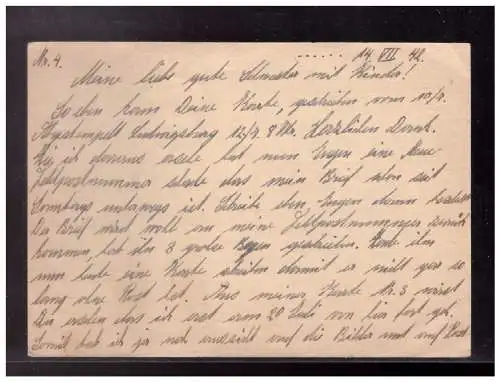 Nr. 4. ...... 14 VII 42.
Meine liebe gute Schwester mit Kinder!
Soeben kam Deine Karte, geschrieben vom 10/7.
Abgestempelt Ludwigsburg 12/7. 8 Uhr. Herzlichen Dank.
Wie ich daraus ersehe hat nun Eugen eine Neue
Feldpostnummer schade das mein Brief von seit
unterwegs ist. Schreibe eben, Eugen dann
Der Brief wird wohl an meine Feldpostnummer zurück
kommen, hab ihm 3 große Bogen geschrieben. ihm
nun heute eine Karte schreiben damit er nicht gar so
lang ohne Post ist. Aus meiner Karte Nr. 3 wirst
Du ersehen das ich erst am 20 Juli von hier fort geh.
Somit hab ich ja noch Aussicht auf die Bilder und auf Post